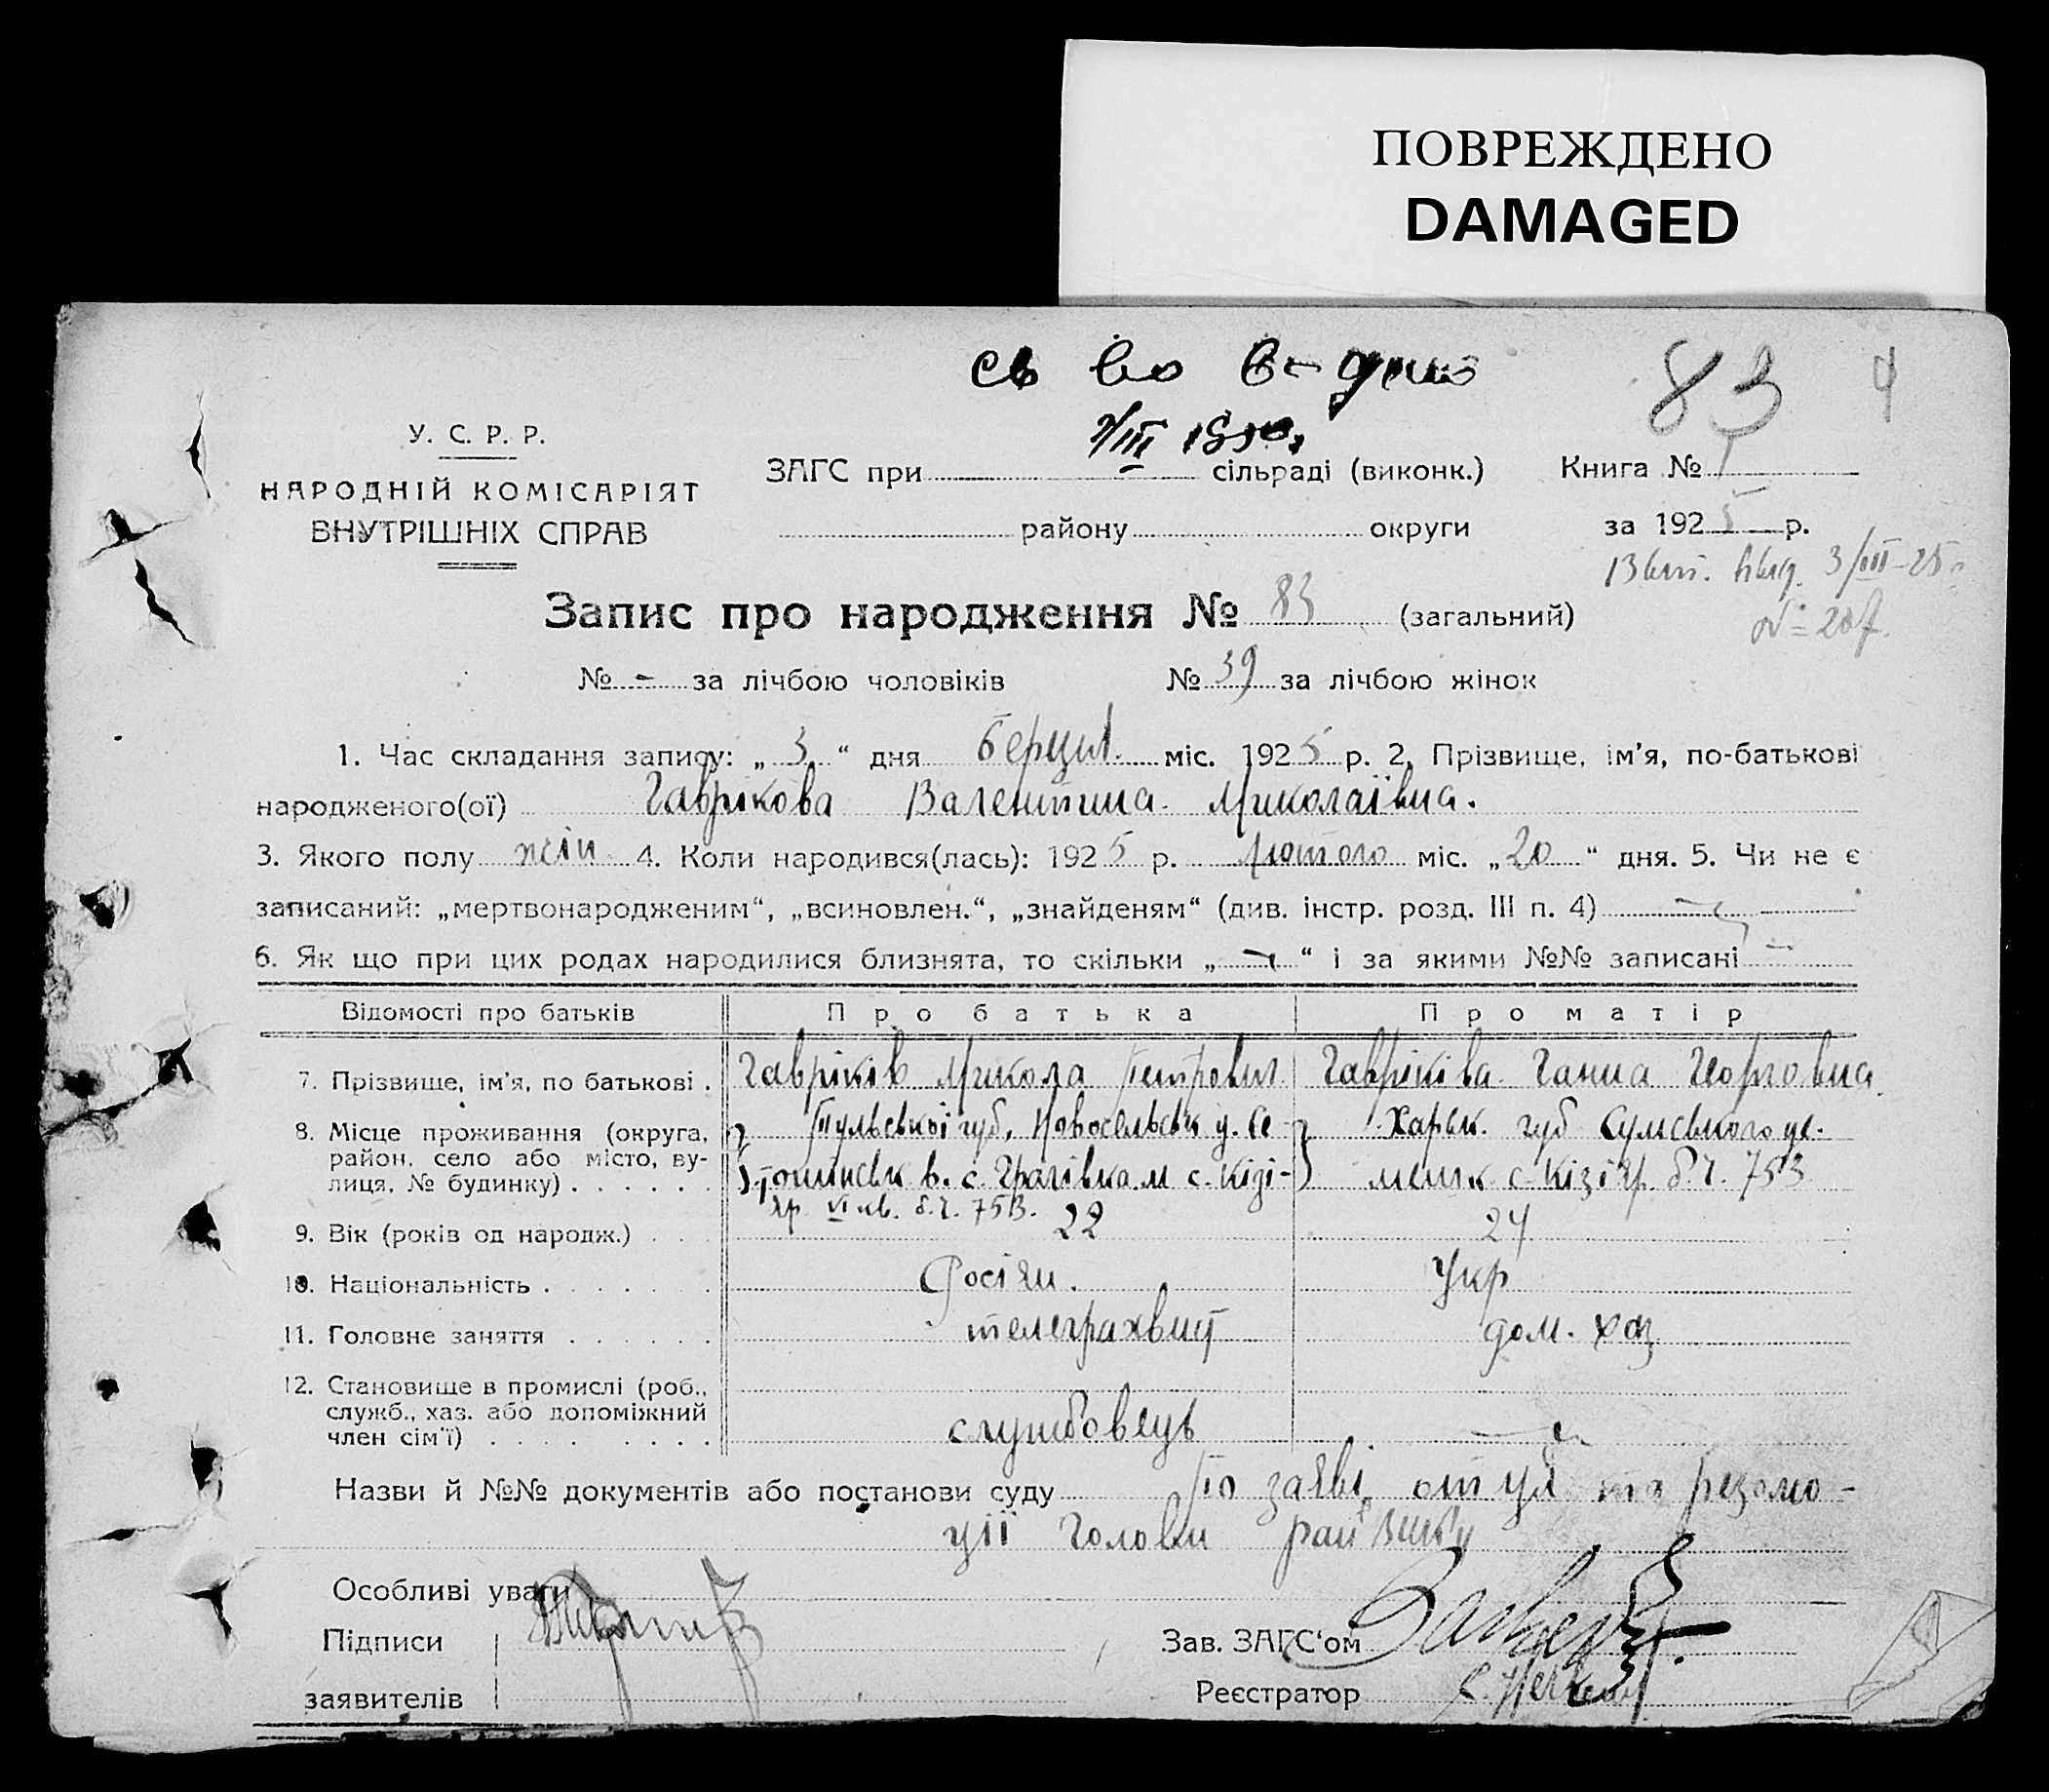 ПОВРЕЖДЕНО
DAMAGED
83 4
7/III
У. С. Р. Р.
НАРОДНІЙ КОМІСАРІЯТ
ВНУТРІШНІХ СПРАВ
ЗАГС при сільраді (виконк.) Книга № I
району округи за 1925 р.
3/III-25
Запис про народження № 83 (загальний)
№ - за лічбою чоловіків № 39 за лічбою жінок
1. Час складання запису: „ 3 “ дня берцня міс. 1925 р. 2. Прізвище, ім’я, по-батькові
народженого(ої) Гаврікова Валентина Миколаївна.
3. Якого полу жін 4. Коли народився(лась): 1925 р. лютого міс. „ 20 “ дня. 5. Чи не є
записаний: „мертвонародженим“, „всиновлен.“, „знайденям“ (див. інстр. розд. III п. 4) -
6. Як що при цих родах народилися близнята, то скільки „ - “ і за якими №№ записані -
Відомості про батьків Про батька Про матір
7. Прізвище, ім’я, по батькові . Гавріків Микола Петрович Гавріківа Ганна Георговна
8. Місце проживання (округа, Тульської губ, Новосельськ у. Харьк. губ Сумського ує.
район, село або місто, ву- в. с. м с. Кізі- с. Кізіяр. б.ч. 753
лиця, № будинку) . . . . . . яр VI кв. б.ч. 753.
9. Вік (років од народж.) . . . 22 24
10. Національність . . . . . . . Росіян. Укр
11. Головне заняття . . . . . . телеграхвист дом. хоз
12. Становище в промислі (роб.,
служб., хаз. або допоміжний
член сім’ї) . . . . . . . . службовець -
Назви й №№ документів або постанови суду По заяві отця та резолю-
ції голови
Особливі уваги
Підписи Зав. ЗАГС‘ом
заявителів Реєстратор